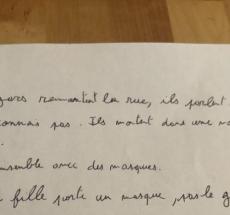 garçons remontent la rue, ils parlent
connais pas. Ils montent dans une
ensemble avec des masques.
fille porte un masque, pas le